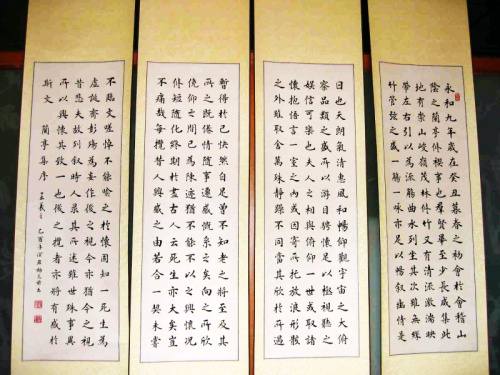 永和九年歲在癸丑暮春之初會於會稽山
陰之蘭亭修禊事也群賢畢至少長咸集此
地有崇山峻嶺茂林修竹又有清流激湍映
帶左右引以為流觴曲水列坐其次雖無絲
竹管弦之盛一觴一詠亦足以暢敘幽情是
日也天朗氣清惠風和暢仰觀宇宙之大俯
察品類之盛所以遊目騁懷足以極視聽之
娛信可樂也夫人之相與俯仰一世或取諸
懷抱悟言一室之內或因寄所託放浪形骸
之外雖取舍萬殊靜躁不同當其欣於所遇
暫得於己快然自足曾不知老之將至及其
所之既倦情隨事遷感慨系之矣向之所欣
俛仰之間已為陳迹猶不能不以之興懷況
修短隨化終期於盡古人云死生亦大矣豈
不痛哉每攬昔人興感之由若合一契未嘗
不臨文嗟悼不能喻之於懷固知一死生為
虛誕齊彭殤為妄作後之視今亦猶今之視
昔悲夫故列敘時人錄其所述雖世殊事異
所以興懷其致一也後之攬者亦將有感於
斯文 蘭亭集序 王羲之 乙酉年